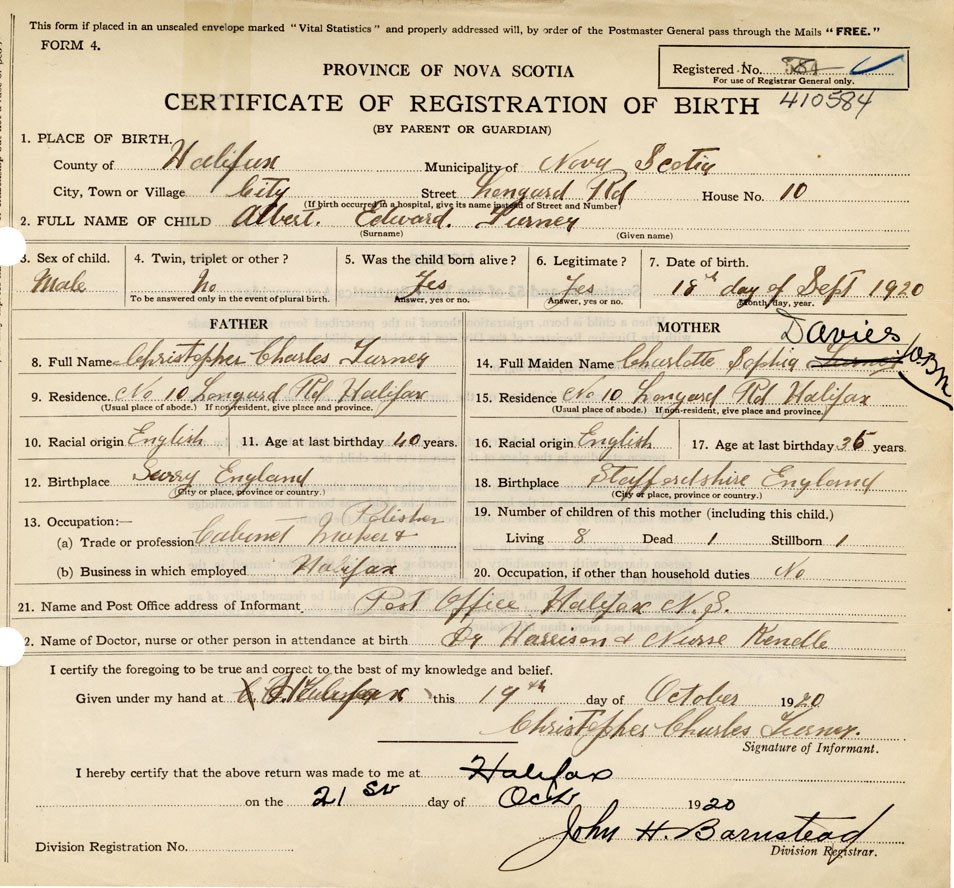 This form if placed in an unsealed envelope marked "Vital Statistics" and properly addressed will, by order of the Postmaster General pass through the Mails "FREE."
FORM 4.
Registered No. 584
For use of Registrar General only.
410584
PROVINCE OF NOVA SCOTIA
CERTIFICATE OF REGISTRATION OF BIRTH
(BY PARENT OR GUARDIAN)
1. PLACE OF BIRTH.
County of Halifax Municipality of Nova Scotia
City, Town or Village City Street Longard Rd House No. 10
(If birth occurred in a hospital, give its name instead of Street and Number)
2. FULL NAME OF CHILD Albert. Edward. Turney
(Surname) (Given name)
3. Sex of child. 4. Twin, triplet or other? 5. Was the child born alive? 6. Legitimate? 7. Date of birth.
Male No Yes Yes 18th day of Sept 1920
To be answered only in the event of plural birth. Answer, yes or no. Answer, yes or no. Month, day, year.
FATHER MOTHER
Davies
8. Full Name Christopher Charles Turney 14. Full Maiden Name Charlotte Sophia Turney
9. Residence. No 10 Longard Rd Halifax 15. Residence No 10 Longard Rd Halifax
(Usual place of abode.) If non-resident, give place and province. (Usual place of abode.) If non-resident, give place and province.
10. Racial origin English 11. Age at last birthday 40 years. 16. Racial origin English 17. Age at last birthday 36 years.
12. Birthplace Surry England 18. Birthplace Staffordshire England
(City or place, province or country.) (City or place, province or country.)
13. Occupation:— 19. Number of children of this mother (including this child.)
(a) Trade or profession Cabinet Maker & Polisher Living 8 Dead 1 Stillborn 1
(b) Business in which employed Halifax 20. Occupation, if other than household duties No
21. Name and Post Office address of Informant Post Office Halifax N.S.
2. Name of Doctor, nurse or other person in attendance at birth Dr Harrison & Nurse Kendle
I certify the foregoing to be true and correct to the best of my knowledge and belief.
Given under my hand at Halifax this 19th day of October 1920
Christopher Charles Turney.
Signature of Informant.
I hereby certify that the above return was made to me at Halifax
on the 21st day of Oct 1920
John H. Barnstead
Division Registration No. Division Registrar.